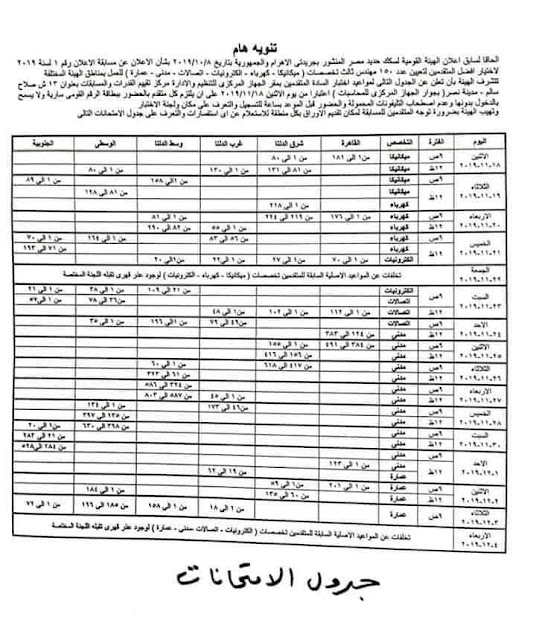 تنويه هام
الحاقا لسابق اعلان الهيئة القومية لسكك حديد مصر المنشور بجريدتى الاهرام والجمهورية بتاريخ ٢٠١٩/١٠/٨ بشأن الاعلان عن مسابقة الاعلان رقم ١ لسنة ٢٠١٩
لاختيار افضل المتقدمين لتعيين عدد ١٥٠ مهندس ثالث تخصصات ( ميكانيكا - كهرباء - الكترونيات - اتصالات - مدنى - عمارة ) للعمل بمناطق الهيئة المختلفة
تتشرف الهيئة بأن تعلن عن الجدول التالى لمواعيد اختبار السادة المتقدمين بمقر الجهاز المركزى للتنظيم والادارة مركز تقييم القدرات والمسابقات بعنوان ١٣ ش صلاح
سالم - مدينة نصر( بجوار الجهاز المركزى للمحاسبات ) اعتبارا من يوم الاثنين ٢٠١٩/١١/١٨ على ان يلتزم كل متقدم بالحضور ببطاقة الرقم القومى سارية ولا يسمح
بالدخول بدونها وعدم اصطحاب التليفونات المحمولة والحضور قبل الموعد بساعة للتسجيل والتعرف على مكان ولجنة الاختبار
وتهيب الهيئة بضرورة توجه المتقدمين للمسابقة لمكان تقديم الاوراق بكل منطقة للاستعلام عن اى استفسارات والتعرف على جدول الامتحانات التالى
اليوم الفترة التخصص القاهرة شرق الدلتا غرب الدلتا وسط الدلتا الوسطى الجنوبية
الاثنين ٢٠١٩-١١-١٨ ٩ص ميكانيكا من ١ الى ١٨١ من ١ الى ٨٠
١٢ظ ميكانيكا من ٨١ الى ١٣١ من ١ الى ١٣٠ من ١ الى ٨٠
الثلاثاء ٢٠١٩-١١-١٩ ٩ص ميكانيكا من ١ الى ١٥٨ من ١ الى ٨٩
١٢ظ ميكانيكا من ٨١ الى ١٢٨
كهرباء من ١ الى ٢١٨
الاربعاء ٢٠١٩-١١-٢٠ ٩ص كهرباء من ١ الى ١٧٦ من ٢١٩ الى ٢٢٤ من ١ الى ٨١
١٢ظ كهرباء من ١ الى ٥٥ من ٨٢ الى ٢٩٠
الخميس ٢٠١٩-١١-٢١ ٩ص كهرباء من ٥٦ الى ٨٣ من ١ الى ١٦٤ من ١ الى ٧٠
١٢ظ كهرباء من ٧١ الى ١٩٣
الكترونيات من ١ الى ٧٠ من ١ الى ٢٧ من ١ الى ٢٢ من ١ الى ٢٠
الجمعة ٢٠١٩-١١-٢٢ تخلفات عن المواعيد الاصلية السابقة للمتقدمين تخصصات ( ميكانيكا - كهرباء - الكترونيات ) لوجود عذر قهرى تقبله اللجنة المختصة
السبت ٢٠١٩-١١-٢٣ ٩ص الكترونيات من ٢١ الى ١٠٩ من ١ الى ٣٨ من ١ الى ٢١
اتصالات من ٣٦ الى ٧٨ من ١ الى ٥٧
١٢ظ اتصالات من ١ الى ١١٢ من ١ الى ١٠٢ من ١ الى ٤٨
الاحد ٢٠١٩-١١-٢٤ ٩ص اتصالات من ٤٩ الى ٧٩ من ١ الى ١٩٦ من ١ الى ٣٥
١٢ظ مدنى من ١٢٤ الى ٣٨٣
الاثنين ٢٠١٩-١١-٢٥ ٩ص مدنى من ٣٨٤ الى ٤٩١ من ١ الى ١٥٥
١٢ظ مدنى من ١٥٦ الى ٤١٦
الثلاثاء ٢٠١٩-١١-٢٦ ٩ص مدنى من ٤١٧ الى ٦١٨ من ١ الى ٦٠
١٢ظ مدنى من ٦١ الى ٣٢٣
الاربعاء ٢٠١٩-١١-٢٧ ٩ص مدنى من ٣٢٤ الى ٥٨٦
١٢ظ مدنى من ١ الى ٤٥ من ٥٨٧ الى ٨٠٣
الخميس ٢٠١٩-١١-٢٨ ٩ص مدنى من ٤٦ الى ١٧٣ من ١ الى ١٣٤
١٢ظ مدنى من ١٣٥ الى ٣٩٧
السبت ٢٠١٩-١١-٣٠ ٩ص مدنى من ٣٩٨ الى ٦٣٠ من ١ الى ٢٠
١٢ظ مدنى من ٢١ الى ٢٨٣
الاحد ٢٠١٩-١٢-١ ٩ص مدنى من ٢٨٤ الى ٥٢٨
١٢ظ مدنى من ١ الى ١٢٣
عمارة من ١٩ الى ٦٢
الاثنين ٢٠١٩-١٢-٢ ٩ص عمارة من ١ الى ٢٠١ من ١ الى ٥٩
١٢ظ عمارة من ٦٠ الى ١٣٥ من ١ الى ١٨٤
الثلاثاء ٢٠١٩-١٢-٣ ٩ص عمارة من ١ الى ١٨ من ١ الى ١٥٨ من ١٨٥ الى ١٩٦ من ١ الى ٧٢
الاربعاء ٢٠١٩-١٢-٤ تخلفات عن المواعيد الاصلية السابقة للمتقدمين تخصصات ( الكترونيات - اتصالات - مدنى - عمارة ) لوجود عذر قهرى تقبله اللجنة المختصة
جدول الامتحانات